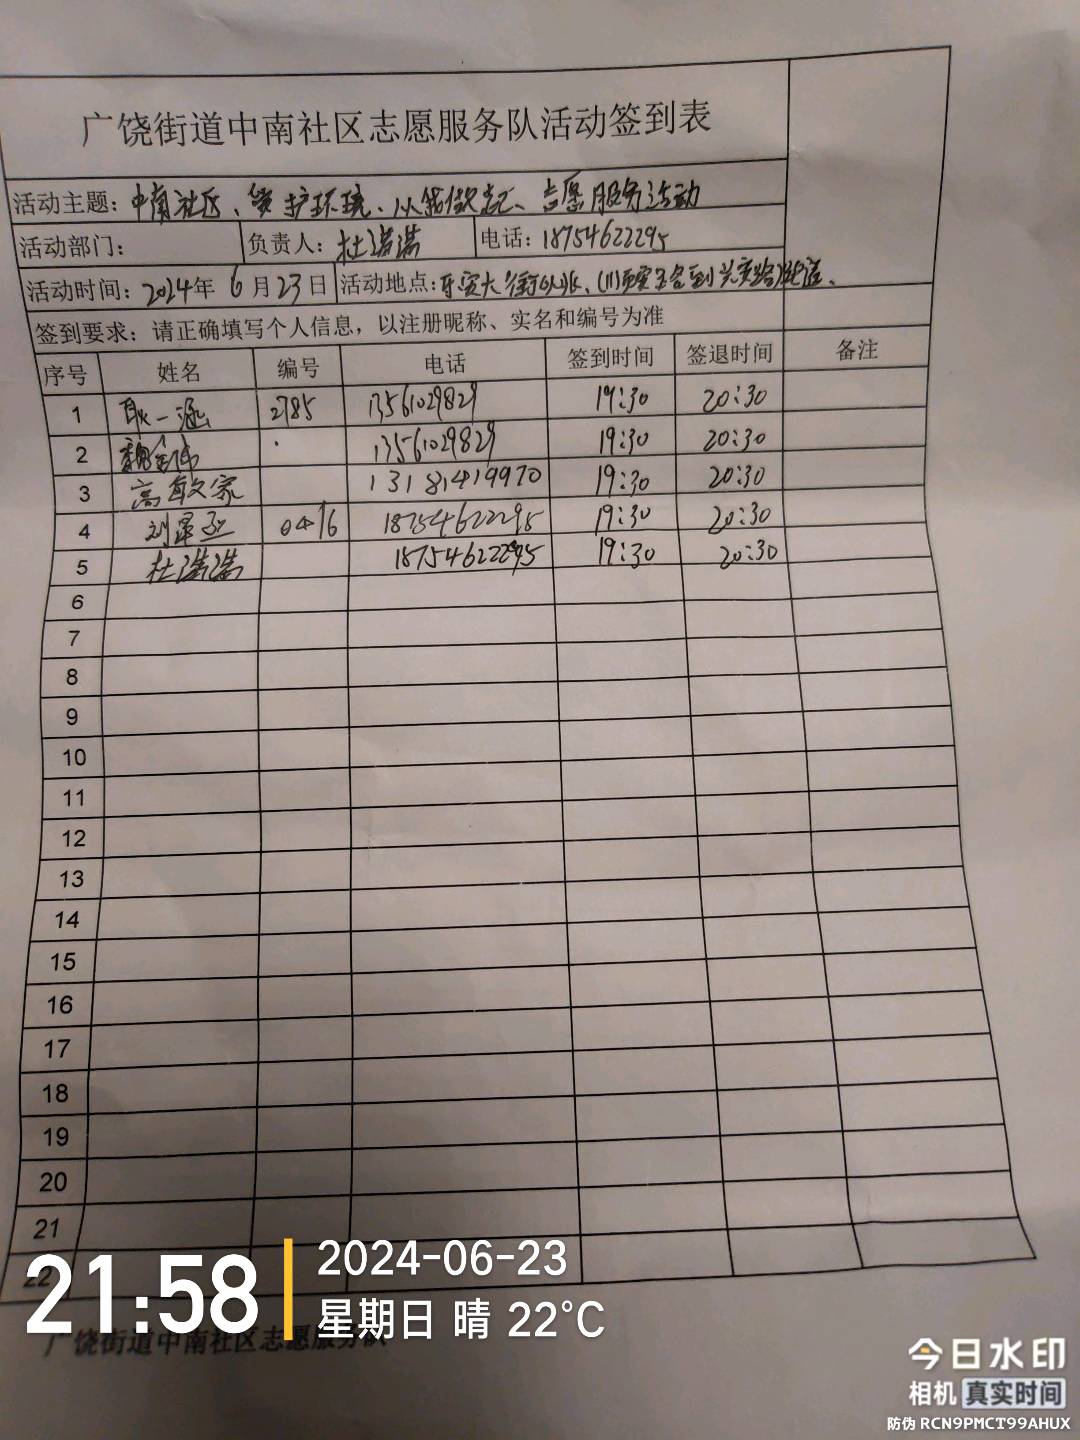 广饶街道中南社区志愿服务队活动签到表
活动主题：中南社区、爱护环境、从我做起、志愿服务活动
活动部门： 负责人：杜满满 电话：18754622295
活动时间：2024年6月23日 活动地点：乐安大街以北、
签到要求：请正确填写个人信息，以注册昵称、实名和编号为准
序号 姓名 编号 电话 签到时间 签退时间 备注
1 耿一涵 2785 13561029829 19:30 20:30
2 13561029829 19:30 20:30
3 高 家 13181419970 19:30 20:30
4 刘 0416 18754622295 19:30 20:30
5 杜满满 18754622295 19:30 20:30
6
7
8
9
10
11
12
13
14
15
16
17
18
19
20
21
22
广饶街道中南社区志愿服务队
21:58
2024-06-23
星期日 晴 22°C
今日水印
相机 真实时间
防伪 RCN9PMCT99AHUX